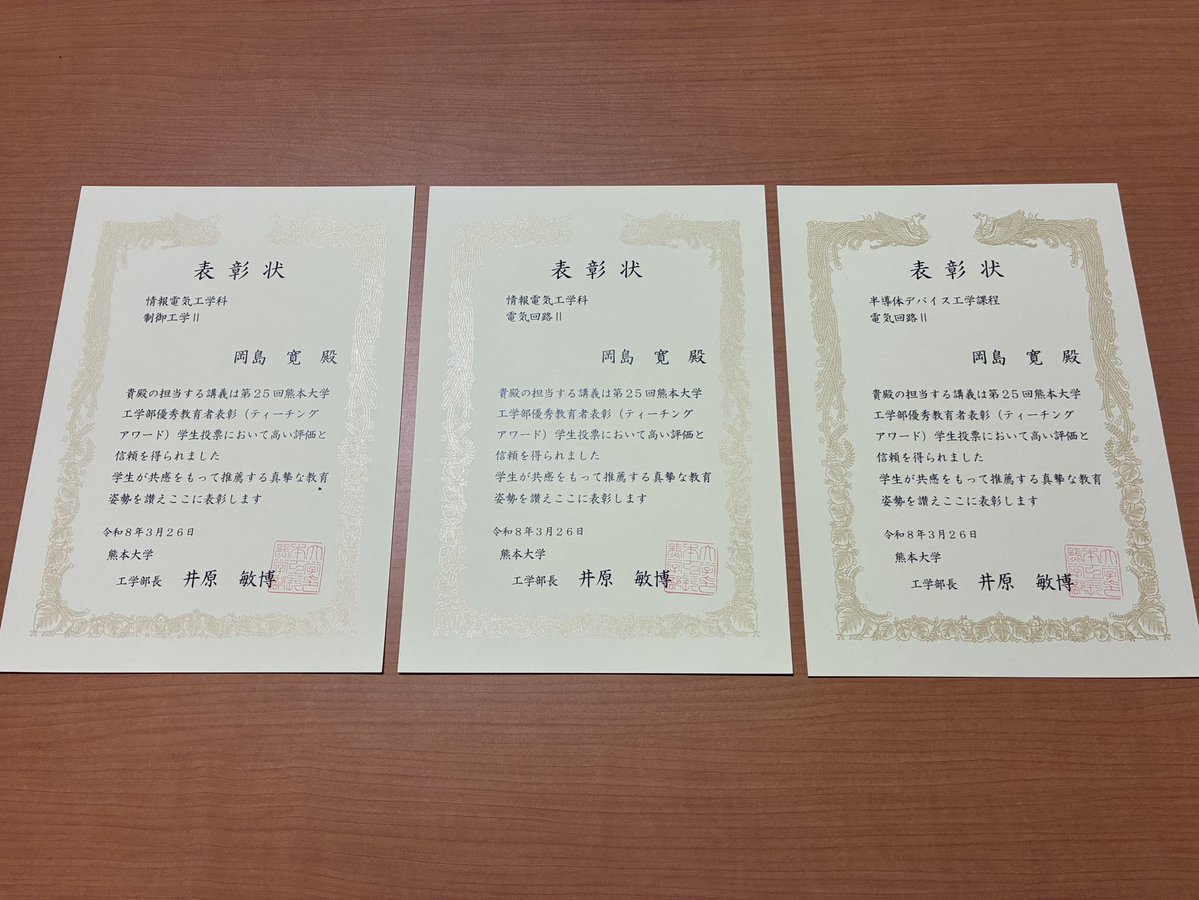 表彰状
情報電気工学科
制御工学Ⅱ
岡島 寛 殿
貴殿の担当する講義は第25回熊本大学
工学部優秀教育者表彰（ティーチング
アワード）学生投票において高い評価と
信頼を得られました
学生が共感をもって推薦する真摯な教育
姿勢を讃えここに表彰します
令和8年3月26日
熊本大学
工学部長 井原 敏博
表彰状
情報電気工学科
電気回路Ⅱ
岡島 寛 殿
貴殿の担当する講義は第25回熊本大学
工学部優秀教育者表彰（ティーチング
アワード）学生投票において高い評価と
信頼を得られました
学生が共感をもって推薦する真摯な教育
姿勢を讃えここに表彰します
令和8年3月26日
熊本大学
工学部長 井原 敏博
表彰状
半導体デバイス工学課程
電気回路Ⅱ
岡島 寛 殿
貴殿の担当する講義は第25回熊本大学
工学部優秀教育者表彰（ティーチング
アワード）学生投票において高い評価と
信頼を得られました
学生が共感をもって推薦する真摯な教育
姿勢を讃えここに表彰します
令和8年3月26日
熊本大学
工学部長 井原 敏博